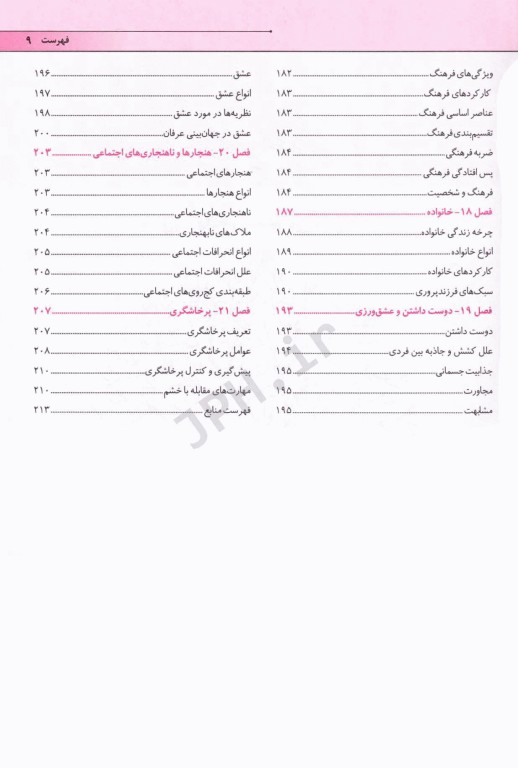 فهرست ۹
ویژگی‌های فرهنگ ۱۸۲
کارکردهای فرهنگ ۱۸۳
عناصر اساسی فرهنگ ۱۸۳
تقسیم‌بندی فرهنگ ۱۸۳
ضربه فرهنگی ۱۸۴
پس افتادگی فرهنگی ۱۸۴
فرهنگ و شخصیت ۱۸۴
فصل ۱۸- خانواده ۱۸۷
چرخه زندگی خانواده ۱۸۸
انواع خانواده ۱۸۹
کارکردهای خانواده ۱۹۰
سبک‌های فرزندپروری ۱۹۰
فصل ۱۹- دوست داشتن و عشق‌ورزی ۱۹۳
دوست داشتن ۱۹۳
علل کشش و جاذبه بین فردی ۱۹۴
جذابیت جسمانی ۱۹۵
مجاورت ۱۹۵
مشابهت ۱۹۵
عشق ۱۹۶
انواع عشق ۱۹۷
نظریه‌ها در مورد عشق ۱۹۸
عشق در جهان‌بینی عرفان ۲۰۰
فصل ۲۰- هنجارها و ناهنجاری‌های اجتماعی ۲۰۳
هنجارهای اجتماعی ۲۰۳
انواع هنجارها ۲۰۳
ناهنجاری‌های اجتماعی ۲۰۴
ملاک‌های نابهنجاری ۲۰۴
انواع انحرافات اجتماعی ۲۰۵
علل انحرافات اجتماعی ۲۰۵
طبقه‌بندی کج‌روی‌های اجتماعی ۲۰۶
فصل ۲۱- پرخاشگری ۲۰۷
تعریف پرخاشگری ۲۰۷
عوامل پرخاشگری ۲۰۸
پیش‌گیری و کنترل پرخاشگری ۲۱۰
مهارت‌های مقابله با خشم ۲۱۰
فهرست منابع ۲۱۳
JPH.ir